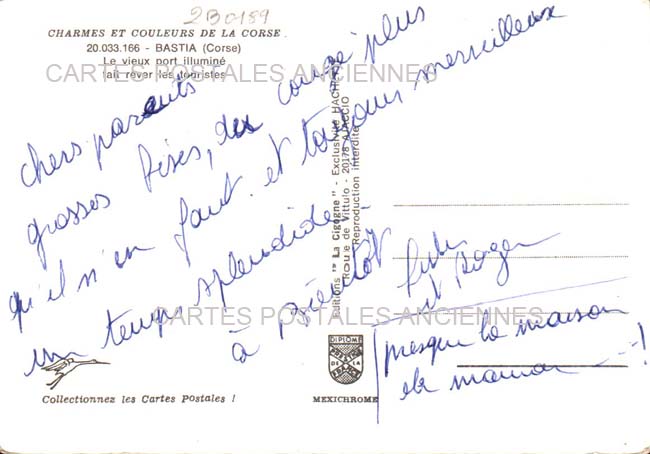 2B0189
CHARMES ET COULEURS DE LA CORSE
20.033.166 - BASTIA (Corse)
Le vieux port illuminé
fait rêver les touristes
CARTES POSTALES ANCIENNES
chers parents
grosses bises, du courage plus
qu'il n'en faut et toujours merveilleux
un temps splendide
à bientôt
et Roger
presque la maison
de maman - - !
Editions "La Cigogne" - Exclusivité HACHETTE
Route de Vittulo - 20178 AJACCIO
Reproduction interdite
CARTES POSTALES ANCIENNES
DIPLOME
DE LA
FRANCE
Collectionnez les Cartes Postales !
MEXICHROME